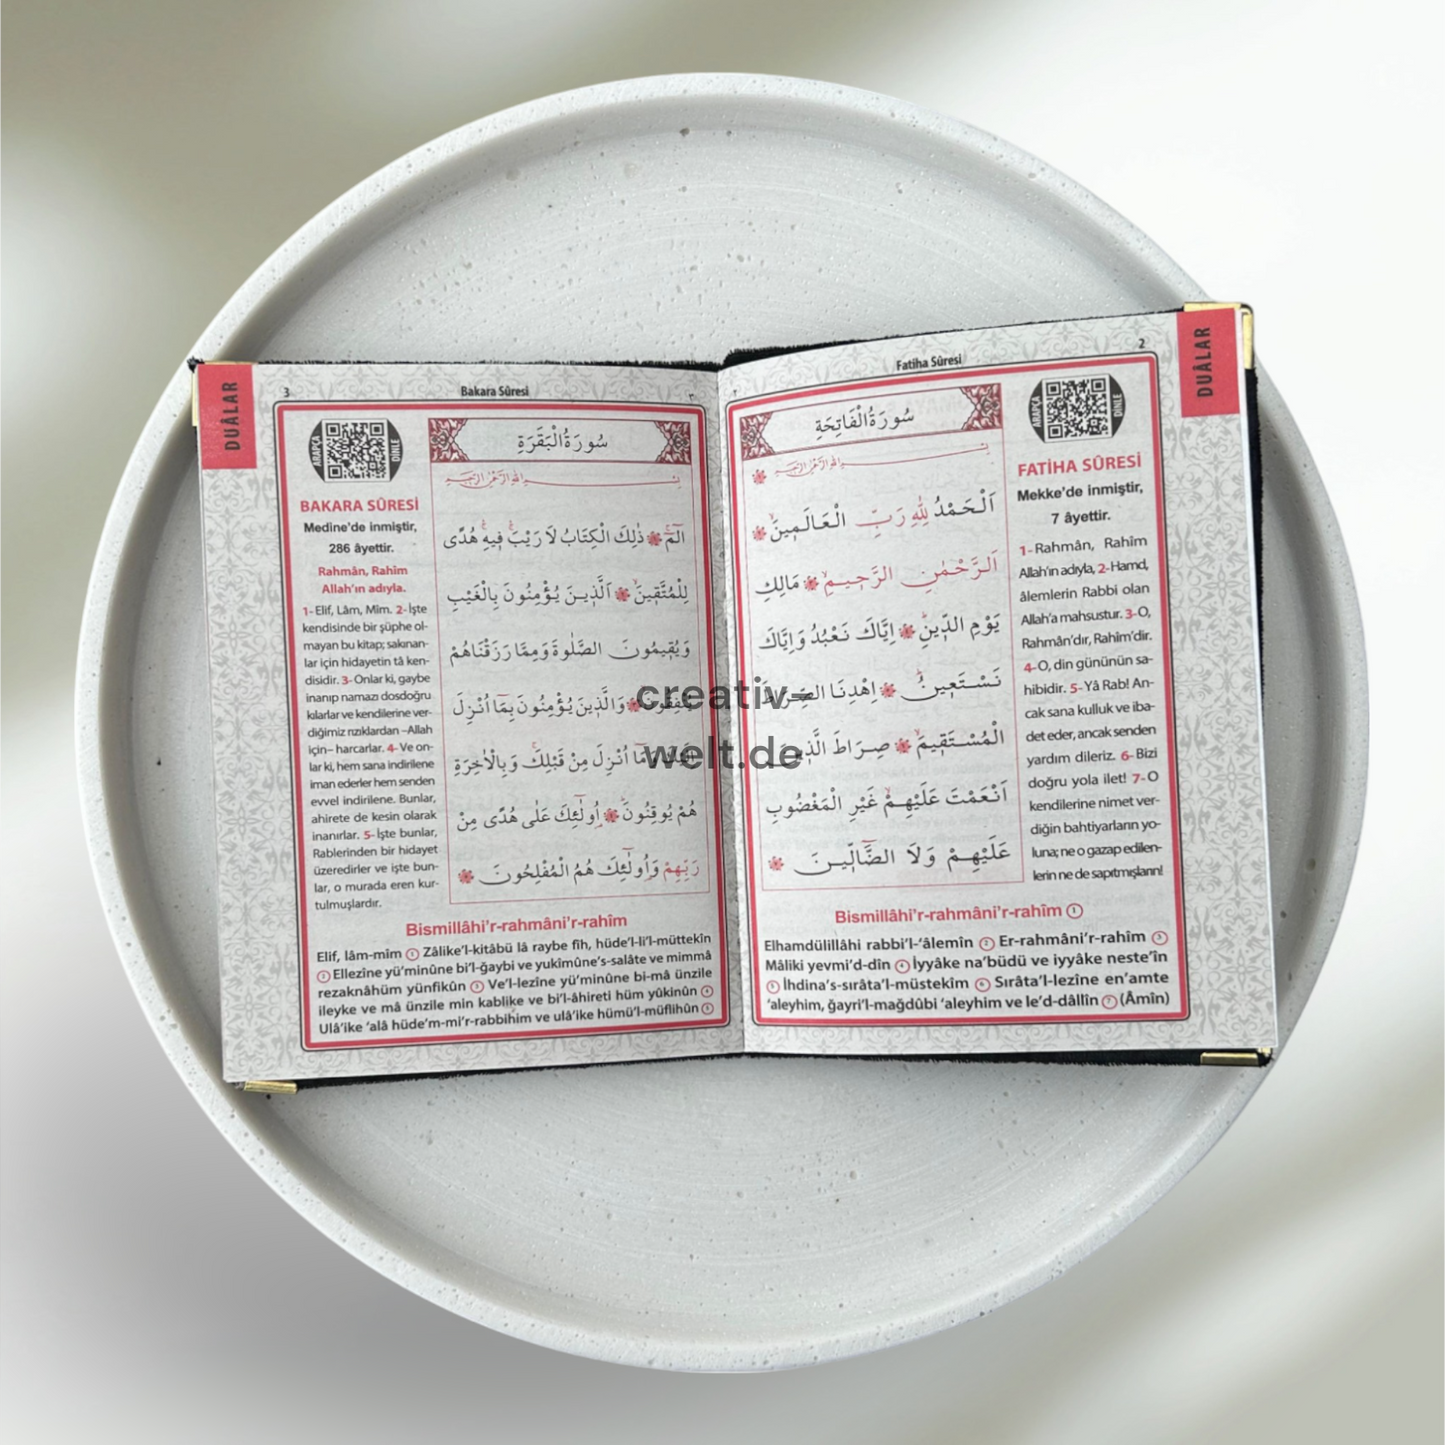 DUÂLAR
2
Fatiha Sûresi
٢
سُورَةُ الْفَاتِحَةِ
ARAPÇA
DİNLE
FATİHA SÛRESİ
Mekke’de inmiştir,
7 âyettir.
1- Rahmân, Rahîm
Allah’ın adıyla, 2- Hamd,
âlemlerin Rabbi olan
Allah’a mahsustur. 3- O,
Rahmân’dır, Rahîm’dir.
4- O, din gününün sa-
hibidir. 5- Yâ Rab! An-
cak sana kulluk ve iba-
det eder, ancak senden
yardım dileriz. 6- Bizi
doğru yola ilet! 7- O
kendilerine nimet ver-
diğin bahtiyarların yo-
luna; ne o gazap edilen-
lerin ne de sapıtmışların!
بِسْمِ اللهِ الرَّحْمٰنِ الرَّحِيمِ
اَلْحَمْدُ لِلّٰهِ رَبِّ الْعَالَمِينَ
اَلرَّحْمٰنِ الرَّحِيمِ مَالِكِ
يَوْمِ الدِّينِ اِيَّاكَ نَعْبُدُ وَاِيَّاكَ
نَسْتَعِينُ اِهْدِنَا
الْمُسْتَقِيمَ صِرَاطَ
اَنْعَمْتَ عَلَيْهِمْ غَيْرِ الْمَغْضُوبِ
عَلَيْهِمْ وَلَا الضَّٓالِّينَ
Bismillâhi’r-rahmâni’r-rahîm 1
Elhamdülillâhi rabbi’l-‘âlemîn 2 Er-rahmâni’r-rahîm 3
Mâliki yevmi’d-dîn 4 İyyâke na’büdü ve iyyâke neste’în
5 İhdina’s-sırâta’l-müstekîm 6 Sırâta’l-lezîne en’amte
‘aleyhim, ğayri’l-mağdûbi ‘aleyhim ve le’d-dâllîn 7 (Âmîn)
DUÂLAR
3
Bakara Sûresi
٣
سُورَةُ الْبَقَرَةِ
ARAPÇA
DİNLE
BAKARA SÛRESİ
Medine’de inmiştir,
286 âyettir.
Rahmân, Rahîm
Allah’ın adıyla.
1- Elif, Lâm, Mîm. 2- İşte
kendisinde bir şüphe ol-
mayan bu kitap; sakınan-
lar için hidayetin tâ ken-
disidir. 3- Onlar ki, gaybe
inanıp namazı dosdoğru
kılarlar ve kendilerine ver-
diğimiz rızıklardan –Allah
için– harcarlar. 4- Ve on-
lar ki, hem sana indirilene
iman ederler hem senden
evvel indirilene. Bunlar,
ahirete de kesin olarak
inanırlar. 5- İşte bunlar,
Rablerinden bir hidayet
üzeredirler ve işte bun-
lar, o murada eren kur-
tulmuşlardır.
بِسْمِ اللهِ الرَّحْمٰنِ الرَّحِيمِ
الٓمٓ ذٰلِكَ الْكِتَابُ لَا رَيْبَ فِيهِ هُدًى
لِلْمُتَّقِينَ اَلَّذِينَ يُؤْمِنُونَ بِالْغَيْبِ
وَيُقِيمُونَ الصَّلٰوةَ وَمِمَّا رَزَقْنَاهُمْ
وَالَّذِينَ يُؤْمِنُونَ بِمَٓا اُنْزِلَ
اُنْزِلَ مِنْ قَبْلِكَ وَبِالْاٰخِرَةِ
هُمْ يُوقِنُونَ اُولٰٓئِكَ عَلٰى هُدًى مِنْ
رَبِّهِمْ وَاُولٰٓئِكَ هُمُ الْمُفْلِحُونَ
Bismillâhi’r-rahmâni’r-rahîm
Elif, lâm-mîm 1 Zâlike’l-kitâbü lâ raybe fîh, hüde’l-li’l-müttekîn
2 Ellezîne yü’minûne bi’l-ğaybi ve yukîmûne’s-salâte ve mimmâ
rezaknâhüm yünfikûn 3 Ve’l-lezîne yü’minûne bi-mâ ünzile
ileyke ve mâ ünzile min kablike ve bi’l-âhireti hüm yûkinûn 4
Ulâ’ike ‘alâ hüde’m-mi’r-rabbihim ve ulâ’ike hümü’l-müflihûn 5
creativ-
welt.de